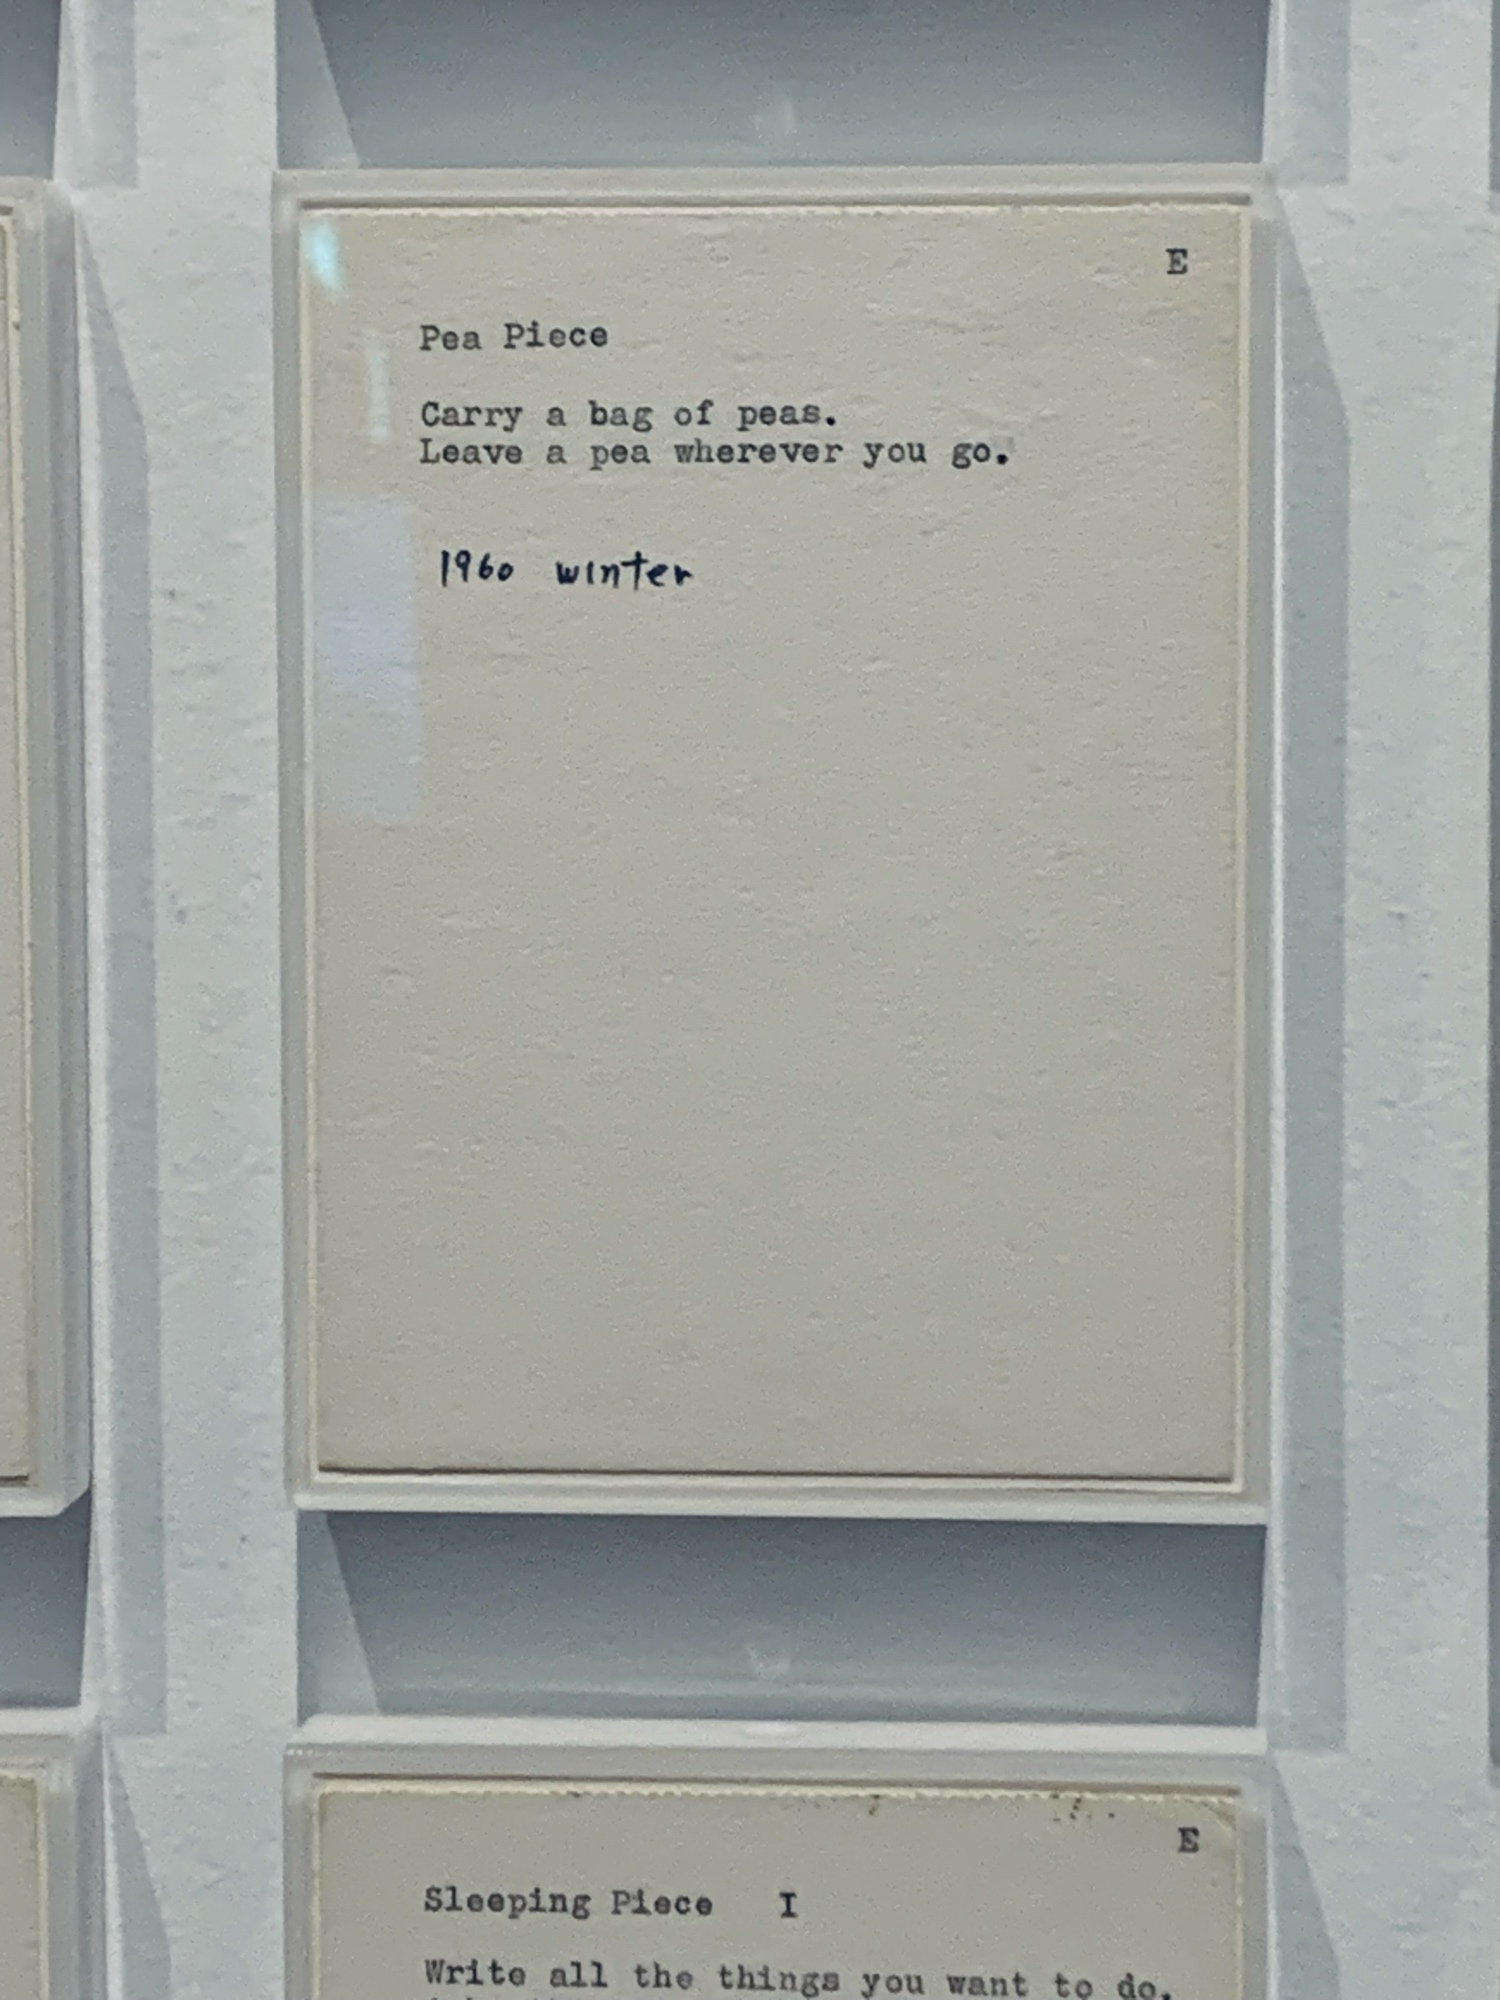 E
Pea Piece
Carry a bag of peas.
Leave a pea wherever you go.
1960 winter
E
Sleeping Piece I
Write all the things you want to do.